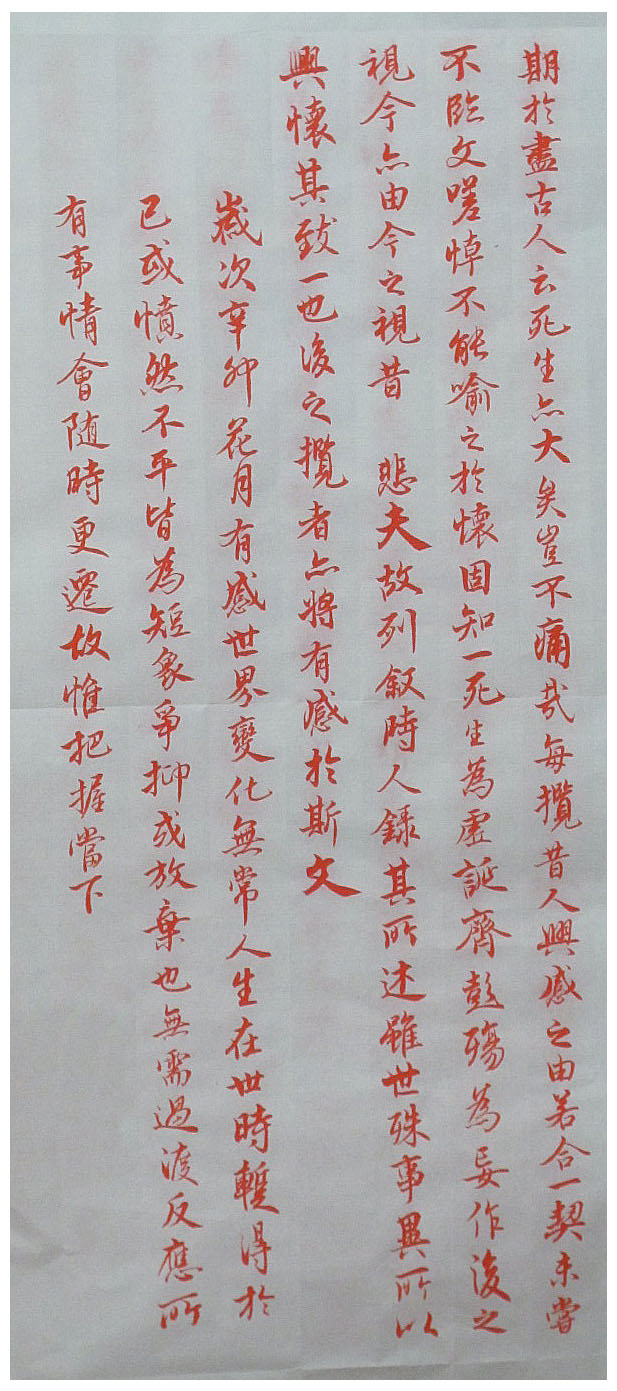 期於盡古人云死生亦大矣豈不痛哉每攬昔人興感之由若合一契未嘗
不臨文嗟悼不能喻之於懷固知一死生為虛誕齊彭殤為妄作後之
視今亦由今之視昔 悲夫故列敘時人錄其所述雖世殊事異所以
興懷其致一也後之攬者亦將有感於斯文
歲次辛卯花月有感世界變化無常人生在世時暫得於
已或憤然不平皆為短象爭抑或放棄也無需過渡反應所
有事情會随時更遷故惟把握當下